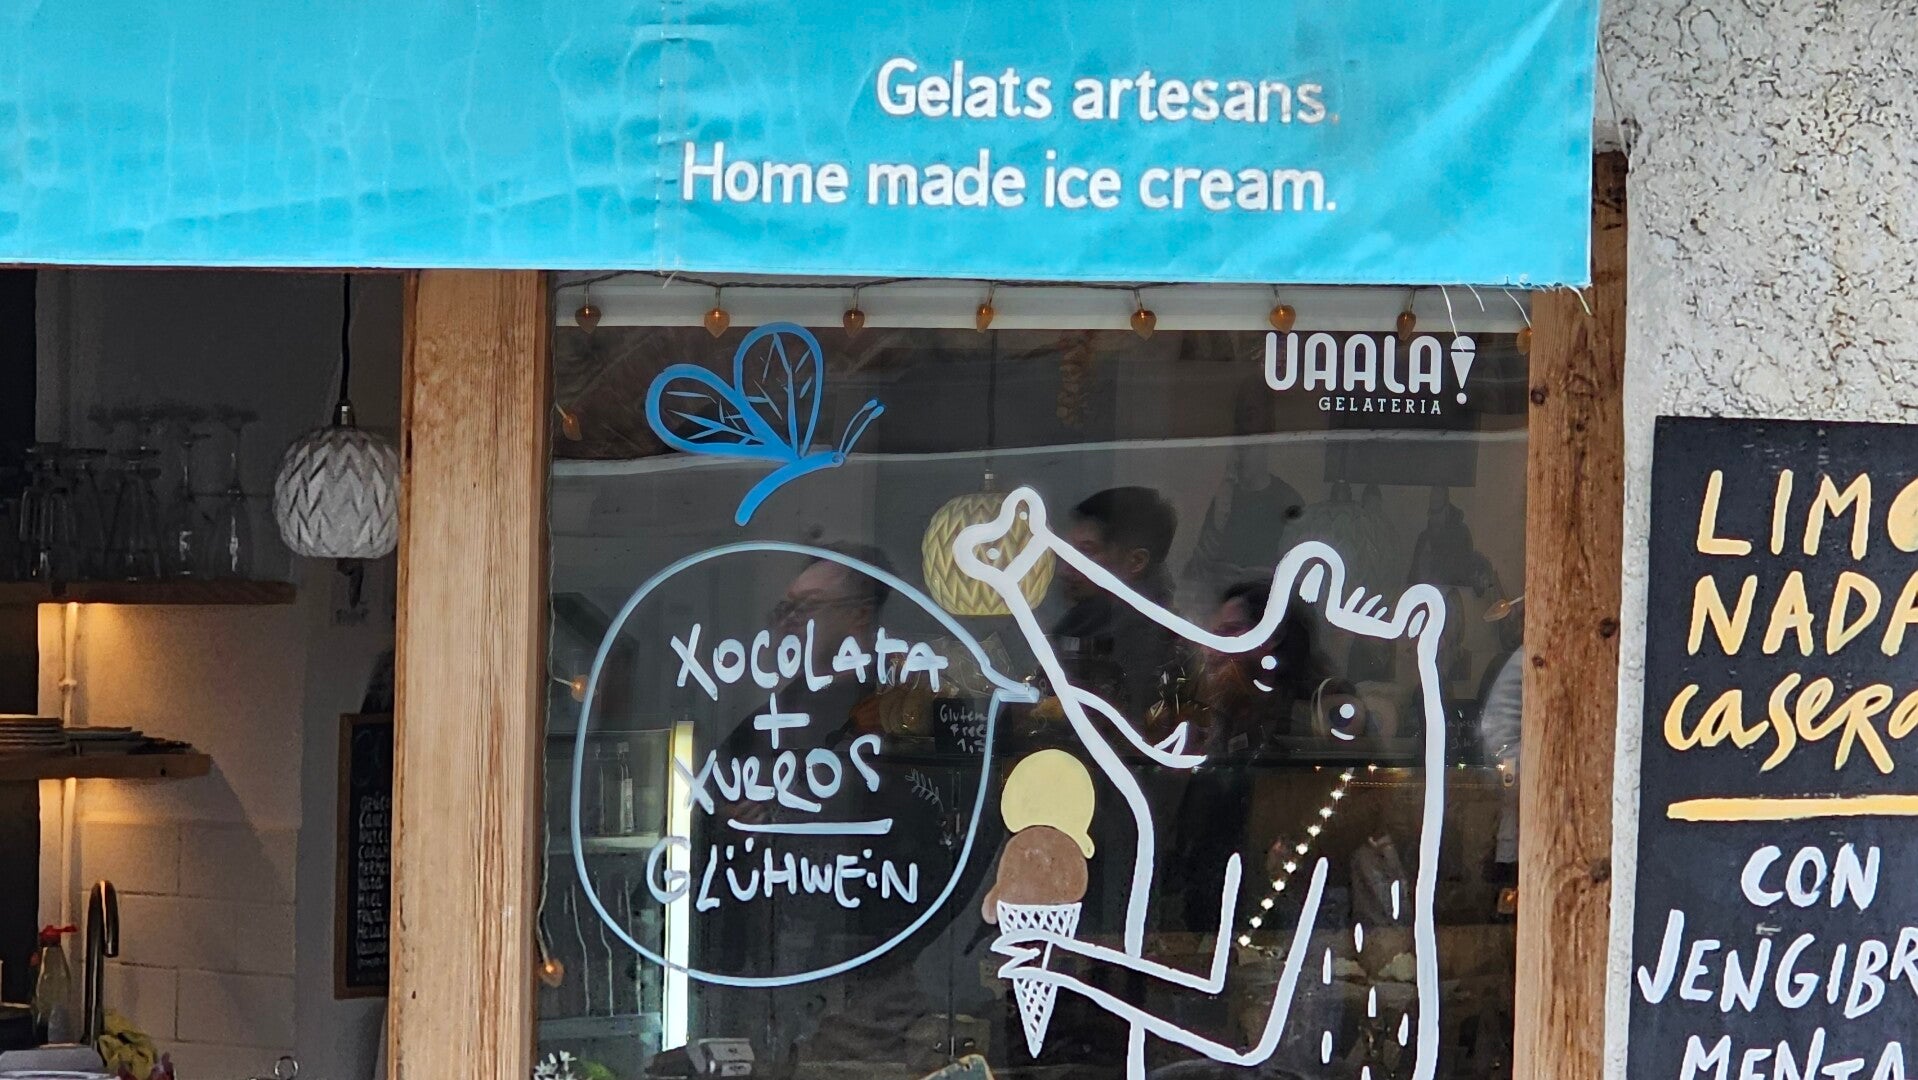 Gelats artesans.
Home made ice cream.
UAALA!
GELATERIA
XOCOLATA
+
XURROS
GLÜHWEIN
Gluten
free
1,5
LIMO
NADA
casera
CON
JENGIBR
MENTA